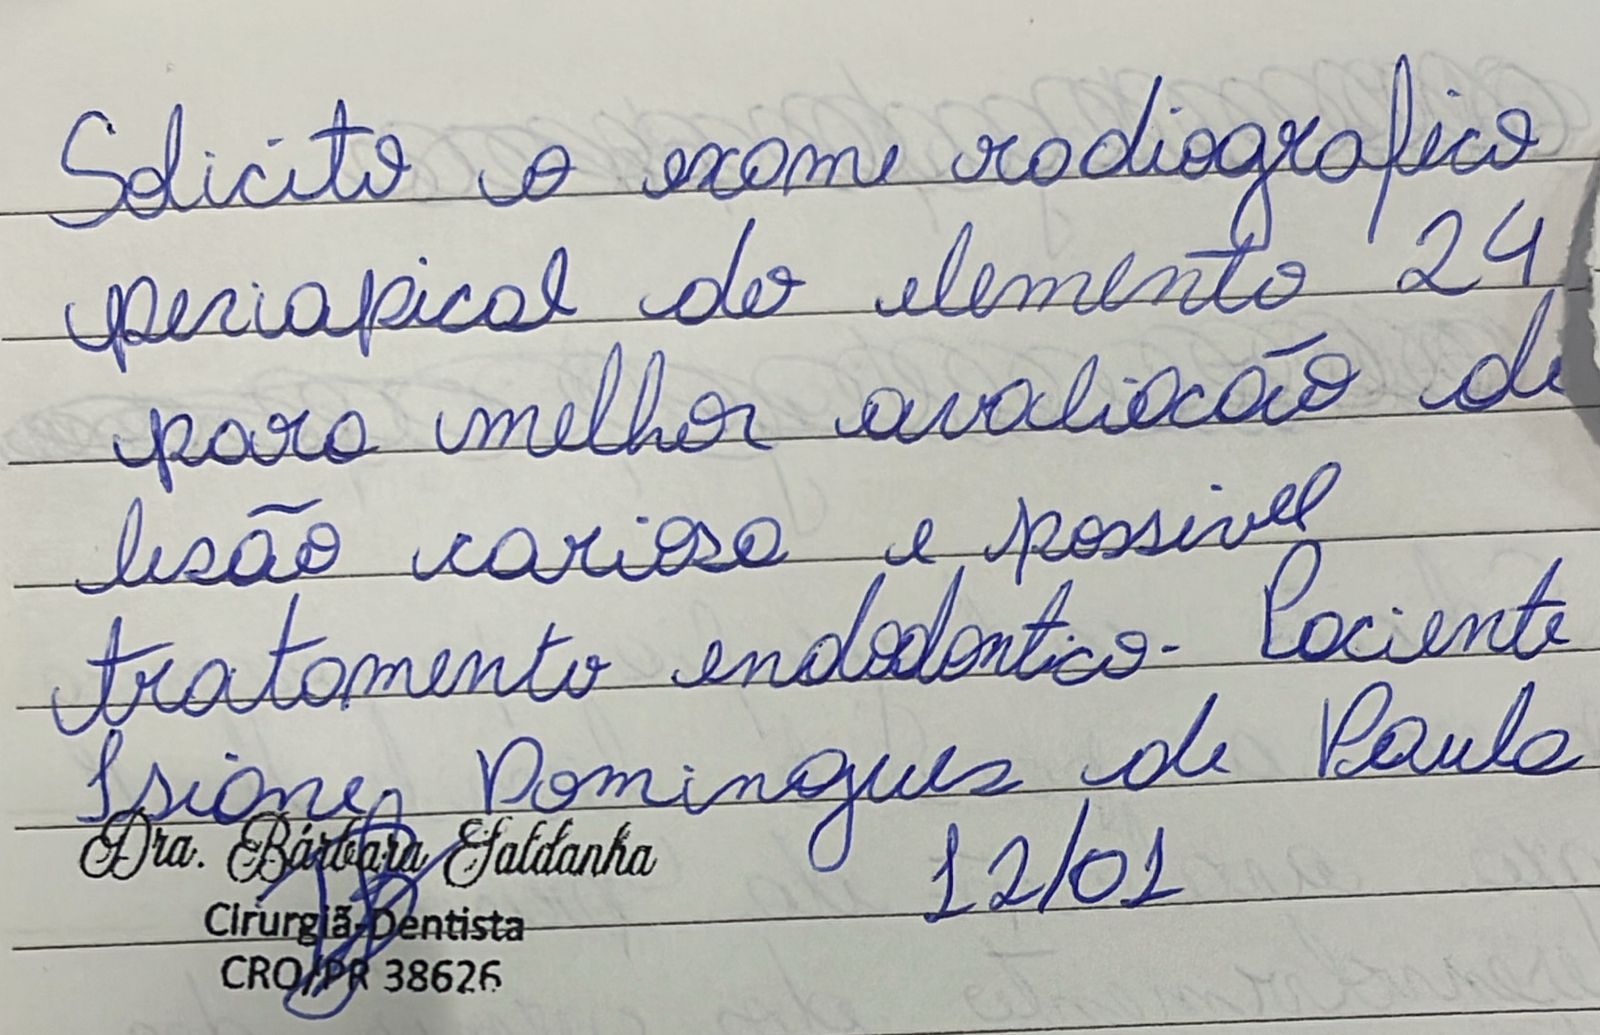 Solicito o exame radiografico
periapical do elemento 24
para melhor avaliacão de
lesão cariosa e possivel
tratamento endodontico. Paciente
Isiane Domingues de Paula
Dra. Bárbara Saldanha
12/01
Cirurgiã-Dentista
CRO/PR 38626